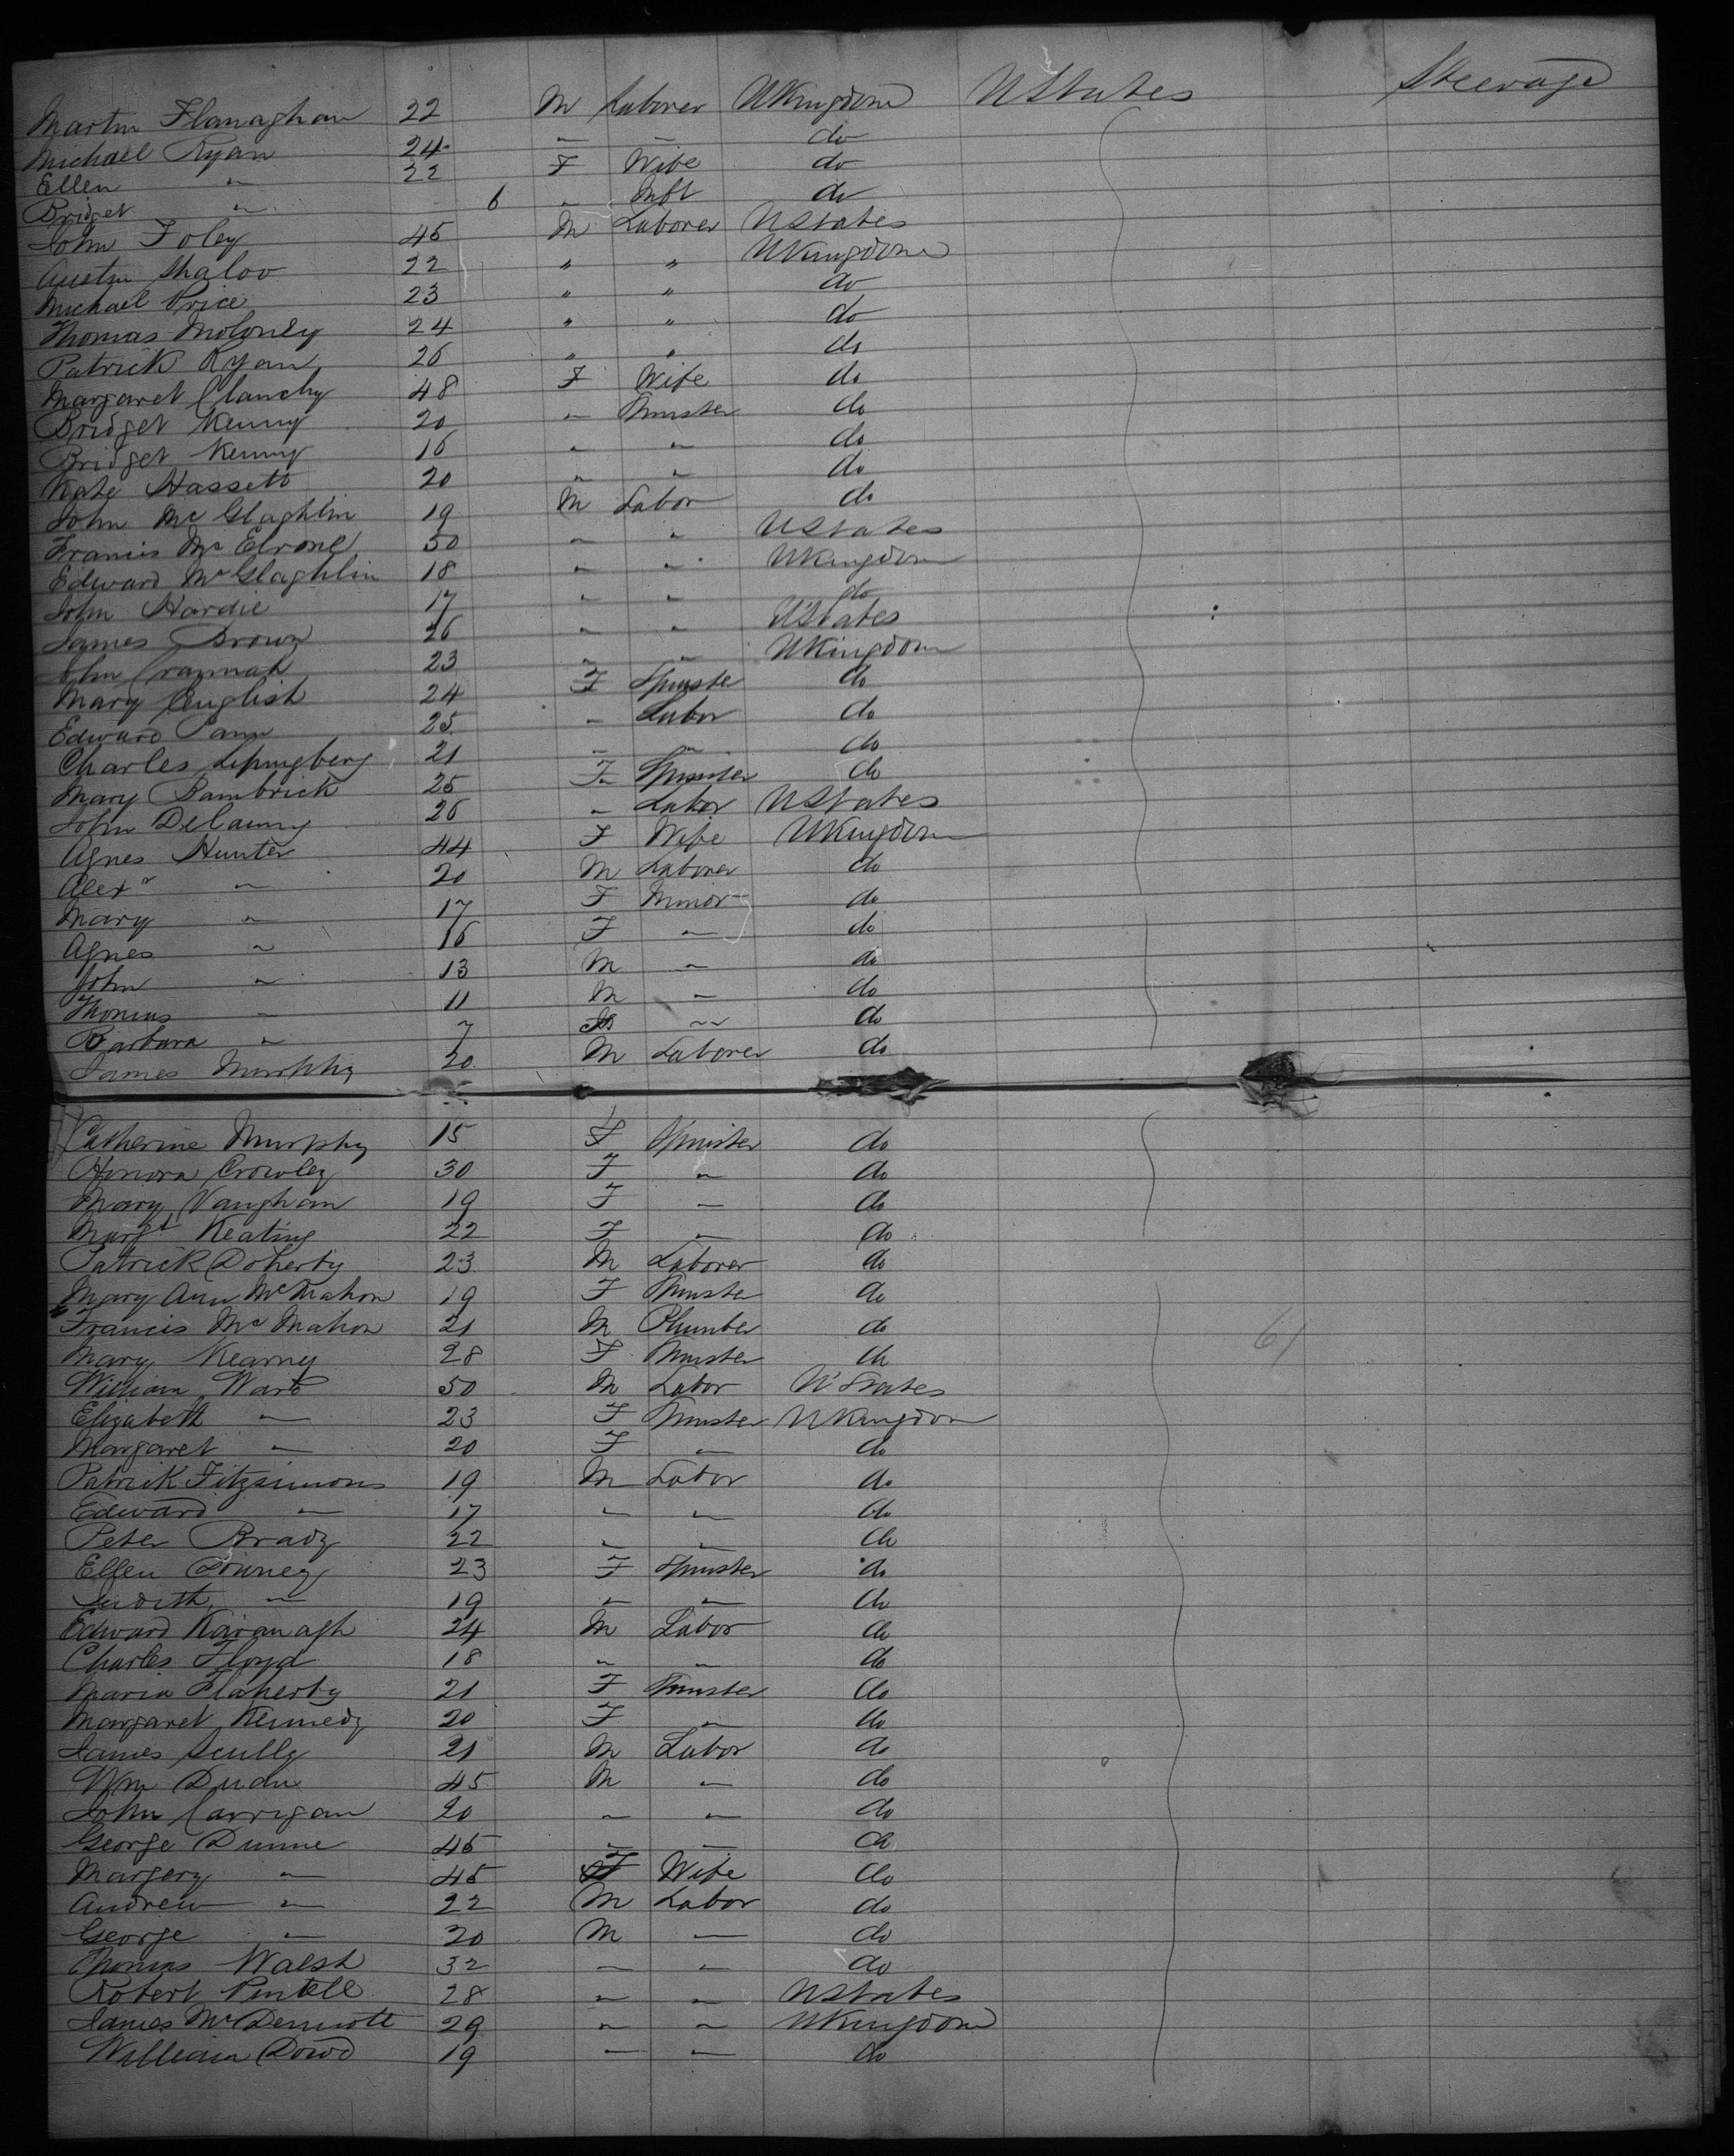 Martin Flanaghan 22 M Laborer UKingdom UStates Steerage
Michael Ryan 24 " " do
Ellen " 22 F Wife do
Bridget " 6 " Inft do
John Foley 45 M Laborer UStates
Austin 22 " " UKingdom
Michael Price 23 " " do
Thomas Moloney 24 " " do
Patrick Ryan 26 " " do
Margaret Clanchy 48 F Wife do
Bridget Kenny 20 " Spinster do
Bridget Kenny 16 " " do
Kate Hassett 20 " " do
John McGlaghlin 19 M Labor do
Francis McElrone 50 " " UStates
Edward McGlaghlin 18 " " UKingdom
John Hardie 17 " " do
James Brown 26 " " UStates
John 23 " " UKingdom
Mary English 24 F Spinster do
Edward 25 " Labor do
Charles 21 " " do
Mary Bambrick 25 F Spinster do
John Delanny 26 " Labor UStates
Agnes Hunter 44 F Wife UKingdom
Alexr " 20 M Laborer do
Mary " 17 F Minor do
Agnes " 16 F " do
John " 13 M " do
Thomas " 11 M " do
Barbara " 7 " do
James Murphy 20 M Laborer do
Catherine Murphy 15 F Spinster do
Honora Crowley 30 F " do
Mary Vaughan 19 F " do
Margt Keating 22 F " do
Patrick Doherty 23 M Laborer do
Mary Ann McMahon 19 F Spinster do
Francis McMahon 21 M Plumber do 61
Mary Kearney 28 F Spinster do
William Ward 50 M Labor UStates
Elizabeth " 23 F Spinster UKingdom
Margaret " 20 F " do
Patrick Fitzsimons 19 M Labor do
Edward " 17 " " do
Peter Brady 22 " " do
Ellen 23 F Spinster do
Judith " 19 " " do
Edward Kavanagh 24 M Labor do
Charles Floyd 18 " " do
Maria Flaherty 21 F Spinster do
Margaret Kennedy 20 F " do
James Scully 21 M Labor do
Wm 45 M " do
John Carrigan 20 " " do
George Dunne 45 " " do
Margery " 45 F Wife do
Andrew " 22 M Labor do
George " 20 M " do
Thomas Walsh 32 " " do
Robert Pintell 28 " " UStates
James McDermott 29 " " UKingdom
William Dowd 19 " " do